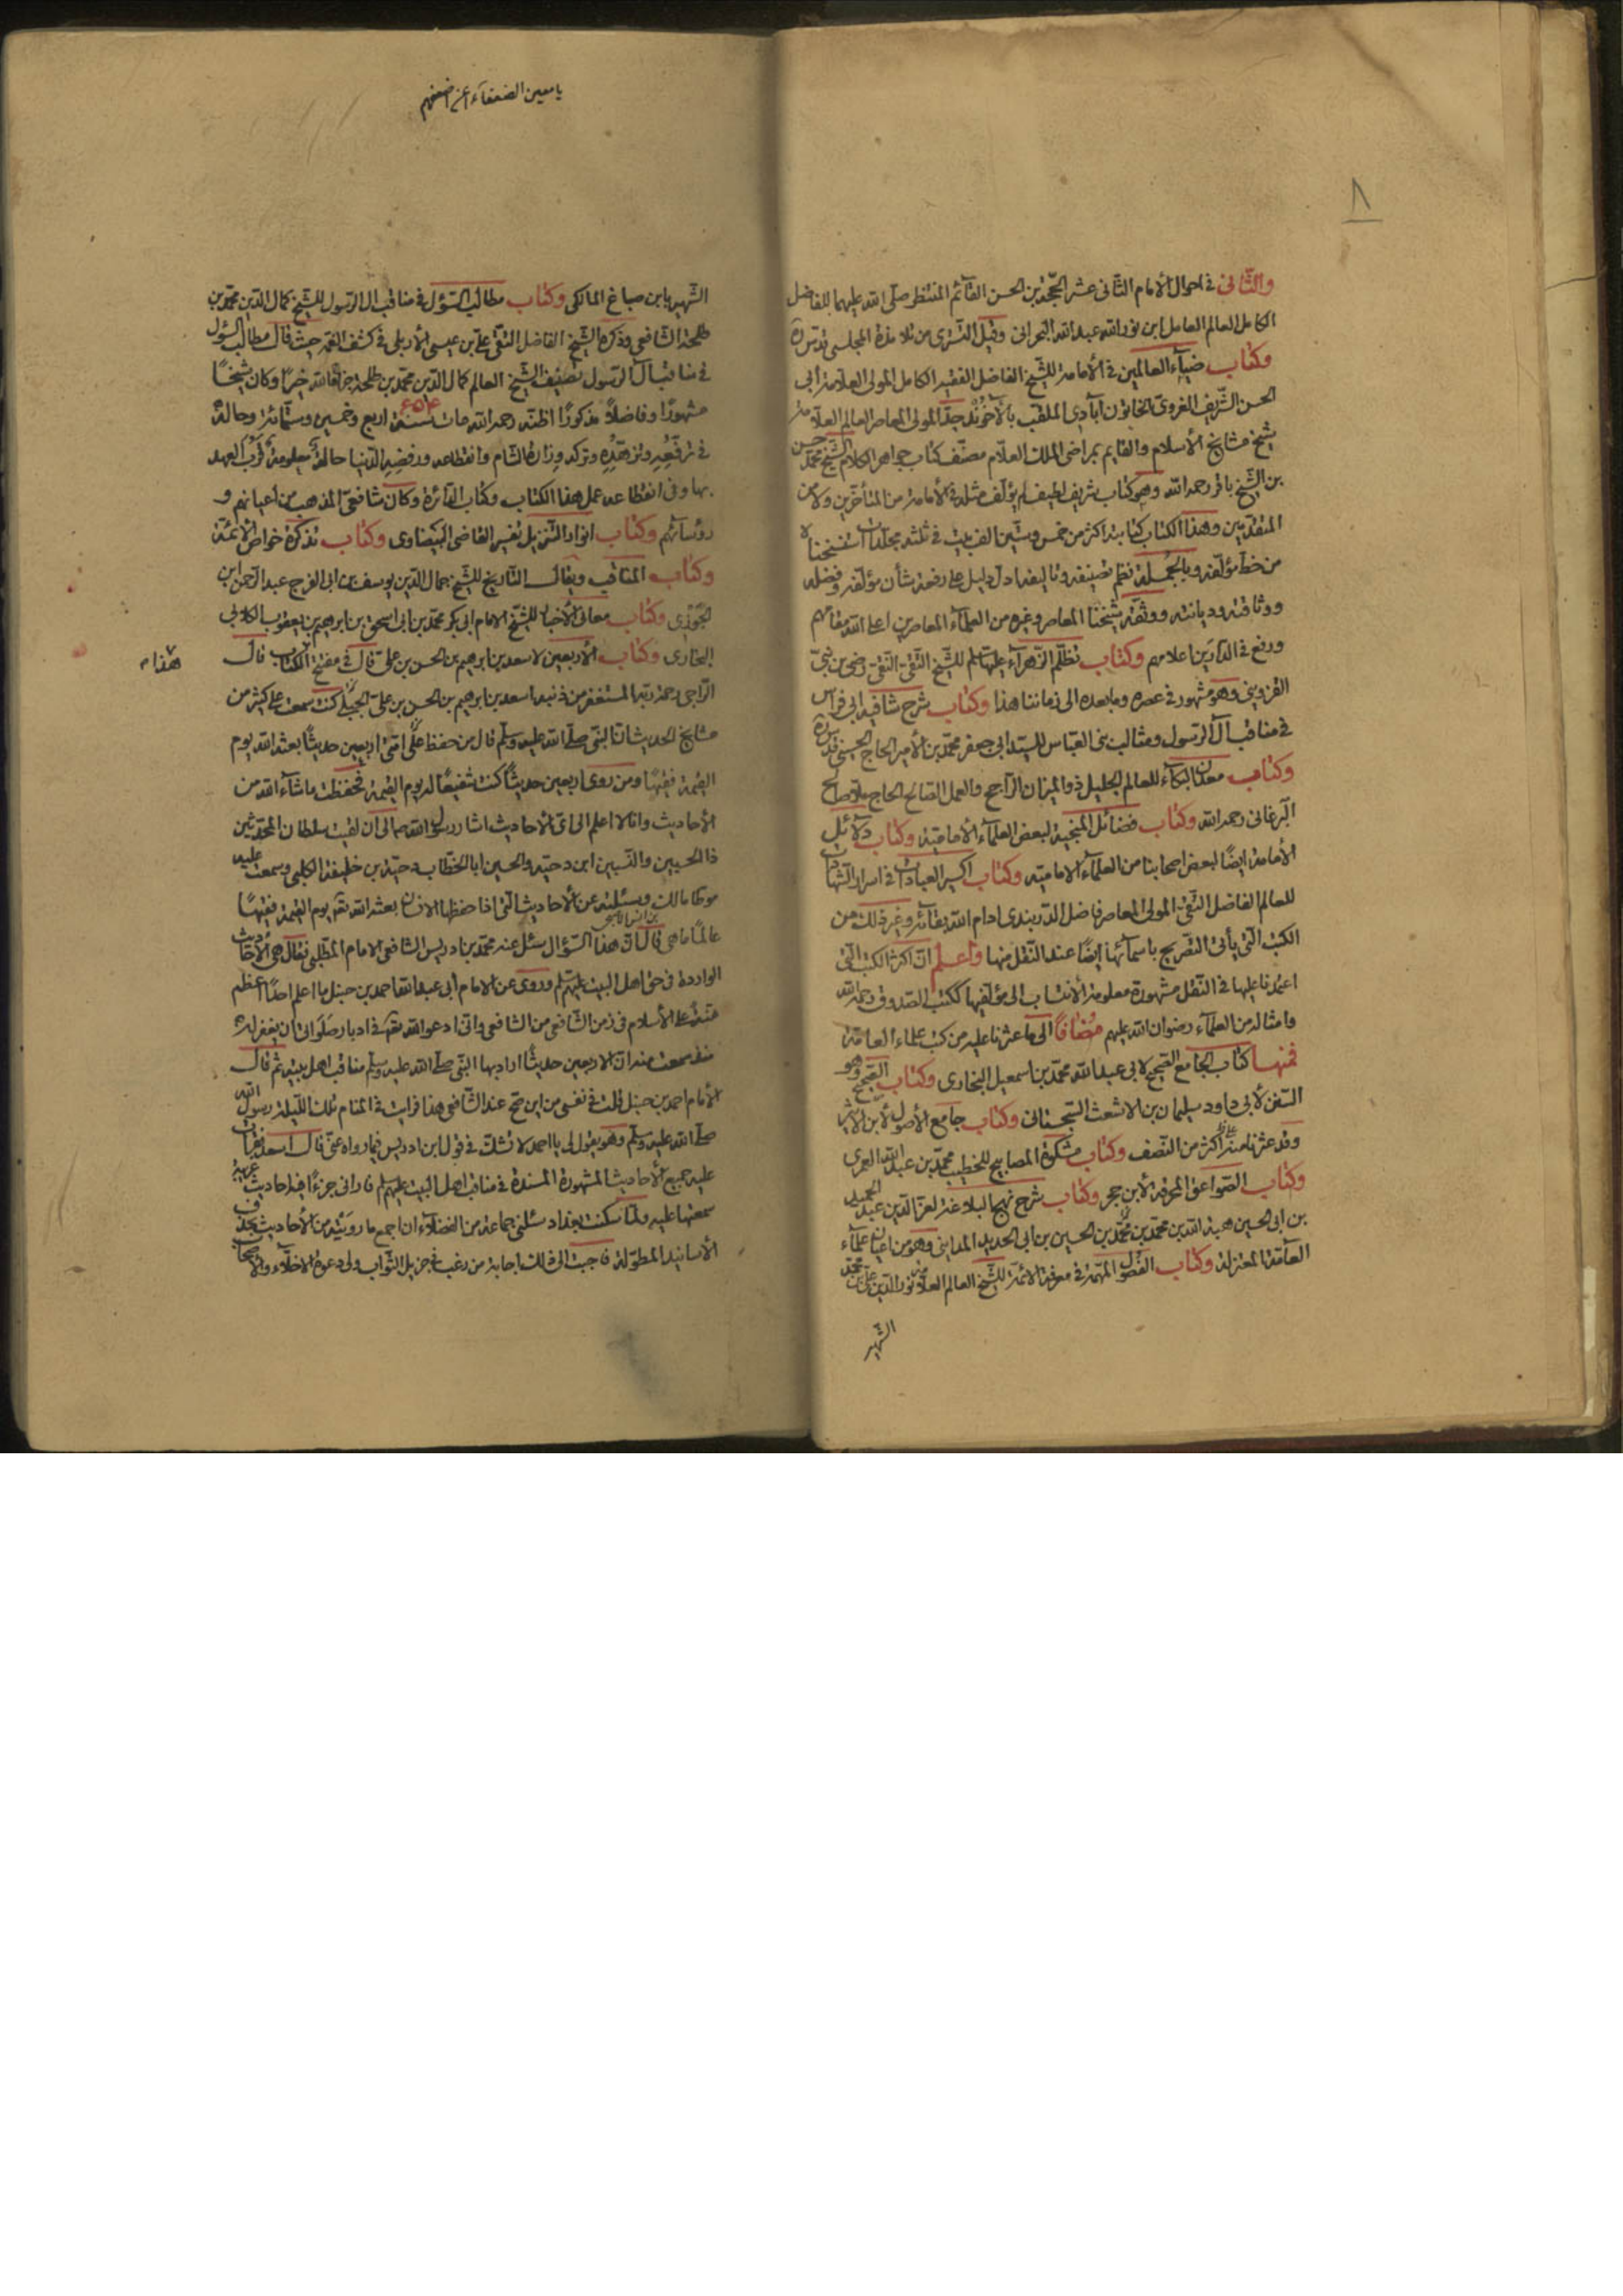 ٨
والثّانی فی احوال الامام الثّانی عشر الحجّة بن الحسن القآئم المنتظر صلّی الله علیهما للفاضل
الکامل العالم العامل ابن نورالله عبدالله البحرانی وقیل التستری من تلامذة المجلسی قدّس سرّه
وکتاب ضیآء العالمین فی الأمامة للشّیخ الفاضل الفقیه الکامل المولی العلّامة أبی
الحسن الشّریف الغروی الخاتون آبادی الملقّب بالآخوند جدّ المولی المعاصر العالم العلّامة
شیخ مشایخ الأسلام والقایم بمراضی الملک العلّام مصنّف کتاب جواهر الکلام الشّیخ محمّد حسن
بن الشّیخ باقر رحمه الله وهو کتاب شریف لطیف لم یؤلّف مثله فی الأمامة من المتأخّرین ولا من
المتقدّمین وهذا الکتاب کتابته اکثر من خمس وستّین الف بیت فی ثلثة مجلّدات استنسخنا
من خطّ مؤلّفه وبالجملة نظم تصنیفه وتالیفه ادلّ دلیل علی رفعة شأن مؤلّفه وفضله
ووثاقته ودیانته ووثّقه شیخنا المعاصر وغیره من العلمآء المعاصرین اعلی الله مقامهم
ورفع فی الدّارین اعلامهم وکتاب تظلّم الزّهرآء علیها السّلم للشّیخ التّقی النّقی رضی بن نبی
القزوینی وهو مشهور فی عصره وما بعده الی زماننا هذا وکتاب شرح شافیه ابی فراس
فی مناقب آل الرّسول ومثالب بنی العبّاس للسّید ابی جعفر محمّد بن الأمیر الحاج الحسینی قدّس سرّه
وکتاب معدن البکآء للعالم الجلیل ذو المیزان الرّاجح والعمل الصّالح الحاج ملّا صالح
البرغانی رحمه الله وکتاب فضائل المنجیة لبعض العلمآء الأمامیّة وکتاب دلآئل
الأمامة ایضًا لبعض اصحابنا من العلمآء الامامیّة وکتاب اکسیر العبادات فی اسرار الشّهادات
للعالم الفاضل التّقی المولی المعاصر فاضل الدّربندی ادام الله بقآئه وغیر ذلک من
الکتب الّتی یأتی التّصریح باسمآئها ایضًا عند النّقل منها واعلم انّ اکثر الکتب الّتی
اعتمدنا علیها فی النّقل مشهورة معلومة الأنتساب الی مؤلّفیها ککتب الصّدوق رحمه الله
وامثاله من العلمآء رضوان الله علیهم مضافاً الی ما عثرنا علیه من کتب علماء العامّة
فمنها کتاب الجامع الصّحیح لابی عبدالله محمّد بن اسمعیل البخاری وکتاب الصّحیح وهو
السّنن لأبی داود سلیمان بن الاشعث السّجستانی وکتاب جامع الأصول لأبن الاثیر
وقد عثرنا منه علی اکثر من النّصف وکتاب مشکوة المصابیح للخطیب محمّد بن عبدالله العمری
وکتاب الصّواعق المحرقة لأبن حجر وکتاب شرح نهج البلاغة لعزّ الدّین عبد الحمید
بن ابی الحسین هبة الله بن محمّد بن محمّد بن الحسین بن ابی الحدید المداینی وهو من اعیان علمآء
العآمّة المعتزلة وکتاب الفصول المهمّة فی معرفة الائمّة للشّیخ العالم العلّامة نورالدّین علی بن محمّد
الشّهیر
یا معین الضعفآء اعن اضعفهم
الشّهیر بابن صباغ المالکی وکتاب مطالب السّؤل فی مناقب ال الرّسول للشّیخ کمال الدّین محمّد بن
طلحة الشّافعی وذکره الشّیخ الفاضل التّقی علی بن عیسی الأربلی فی کشف الغمّة حیث قال مطالب السّؤل
فی مناقب آل الرّسول تصنیف الشّیخ العالم کمال الدّین محمّد بن طلحة جزاه الله خیرًا وکان شیخًا
مشهورًا وفاضلًا مذکورًا اظنّه رحمه الله مات سنة ٦٥٤ اربع وخمسین وستّمائة وحاله
فی ترفّعه وتزهّده وترکه وزارة الشّام وانقطاعه ورفضه الدّنیا حالة معلومة قرب العهد
بها وفی انقطاعه عمل هذا الکتاب وکتاب الدّائرة وکان شافعیّ المذهب من اعیانهم و
رؤسآئهم وکتاب انوار التّنزیل تفسیر القاضی البیضاوی وکتاب تذکرة خواصّ الائمّة
وکتاب المناقب ویقال التّاریخ للشّیخ جمال الدّین یوسف بن ابی الفرج عبدالرّحمن ابن
الجوزی وکتاب معانی الأخبار للشّیخ الامام ابی بکر محمّد بن ابی اسحق بن ابرهیم بن یعقوب الکلابی
البخاری وکتاب الأربعین لاسعد بن ابرهیم بن الحسن بن علی قال فی مفتتح الکتاب قال
هفدام
الرّاجی رحمة ربّه المستغفر من ذنبه اسعد بن ابرهیم بن الحسن بن علی کنت سمعت علی کثیر من
مشایخ الحدیث انّ النّبی صلّی الله علیه وسلّم قال من حفظ علی امّتی اربعین حدیثًا بعثه الله یوم
القیمة فقیهًا ومن روی اربعین حدیثًا کنت شفیعًا له یوم القیمة فحفظت ما شآء الله من
الأحادیث وانا لا اعلم الی ایّ الأحادیث اشار رسول الله الی ان لقیت سلطان المحدّثین
ذا الحسبین والنّسبین ابن دحیة والحسین ابا الخطّاب بن دحیة بن خلیفة الکلبی وسمعت علیه
موطّا مالک وسئلته عن الأحادیث الّتی اذا حفظها الانسان بعثه الله تعالی یوم القیمة فقیهًا
عالمًا ما هی قال انّ هذا السّؤال سئل عنه محمّد بن ادریس الشّافعی الامام المطّلبی فقال هی الأحادیث
الواردة فی حقّ اهل البیت علیهم السّلم وروی عن الامام أبی عبدالله احمد بن حنبل ما اعلم احدًا اعظم
منّة علی الأسلام فی زمن الشّافعی من الشّافعی وانّی ادعو الله تعالی فی ادبار صلواتی ان یغفر له
منذ سمعت منه انّ الاربعین حدیثًا اراد بها النّبی صلّی الله علیه وسلّم مناقب اهل بیته ثم قال
الأمام احمد بن حنبل قلت فی نفسی من این صحّ عند الشّافعی هذا فرایت فی المنام تلک اللّیلة رسول الله
صلّی الله علیه وسلّم وهو یقول لی یا احمد لا تشکّ فی قول ابن ادریس فیما رواه عنّی قال اسعد فقرأت
علیه جمیع الأحادیث المشهورة المسندة فی مناقب اهل البیت علیهم السّلم فارانی جزءًا فیه احادیث غریبة
سمعتها علیه ولمّا سکنت بغداد سئلنی جماعة من الفضلآء ان اجمع ما رویته من الأحادیث بحذف
الأسانید المطوّلة فاجبت الی ذلک اجابة من رغب فی جزیل الثّواب ولبّی دعوة الاخلّآء والأصحاب